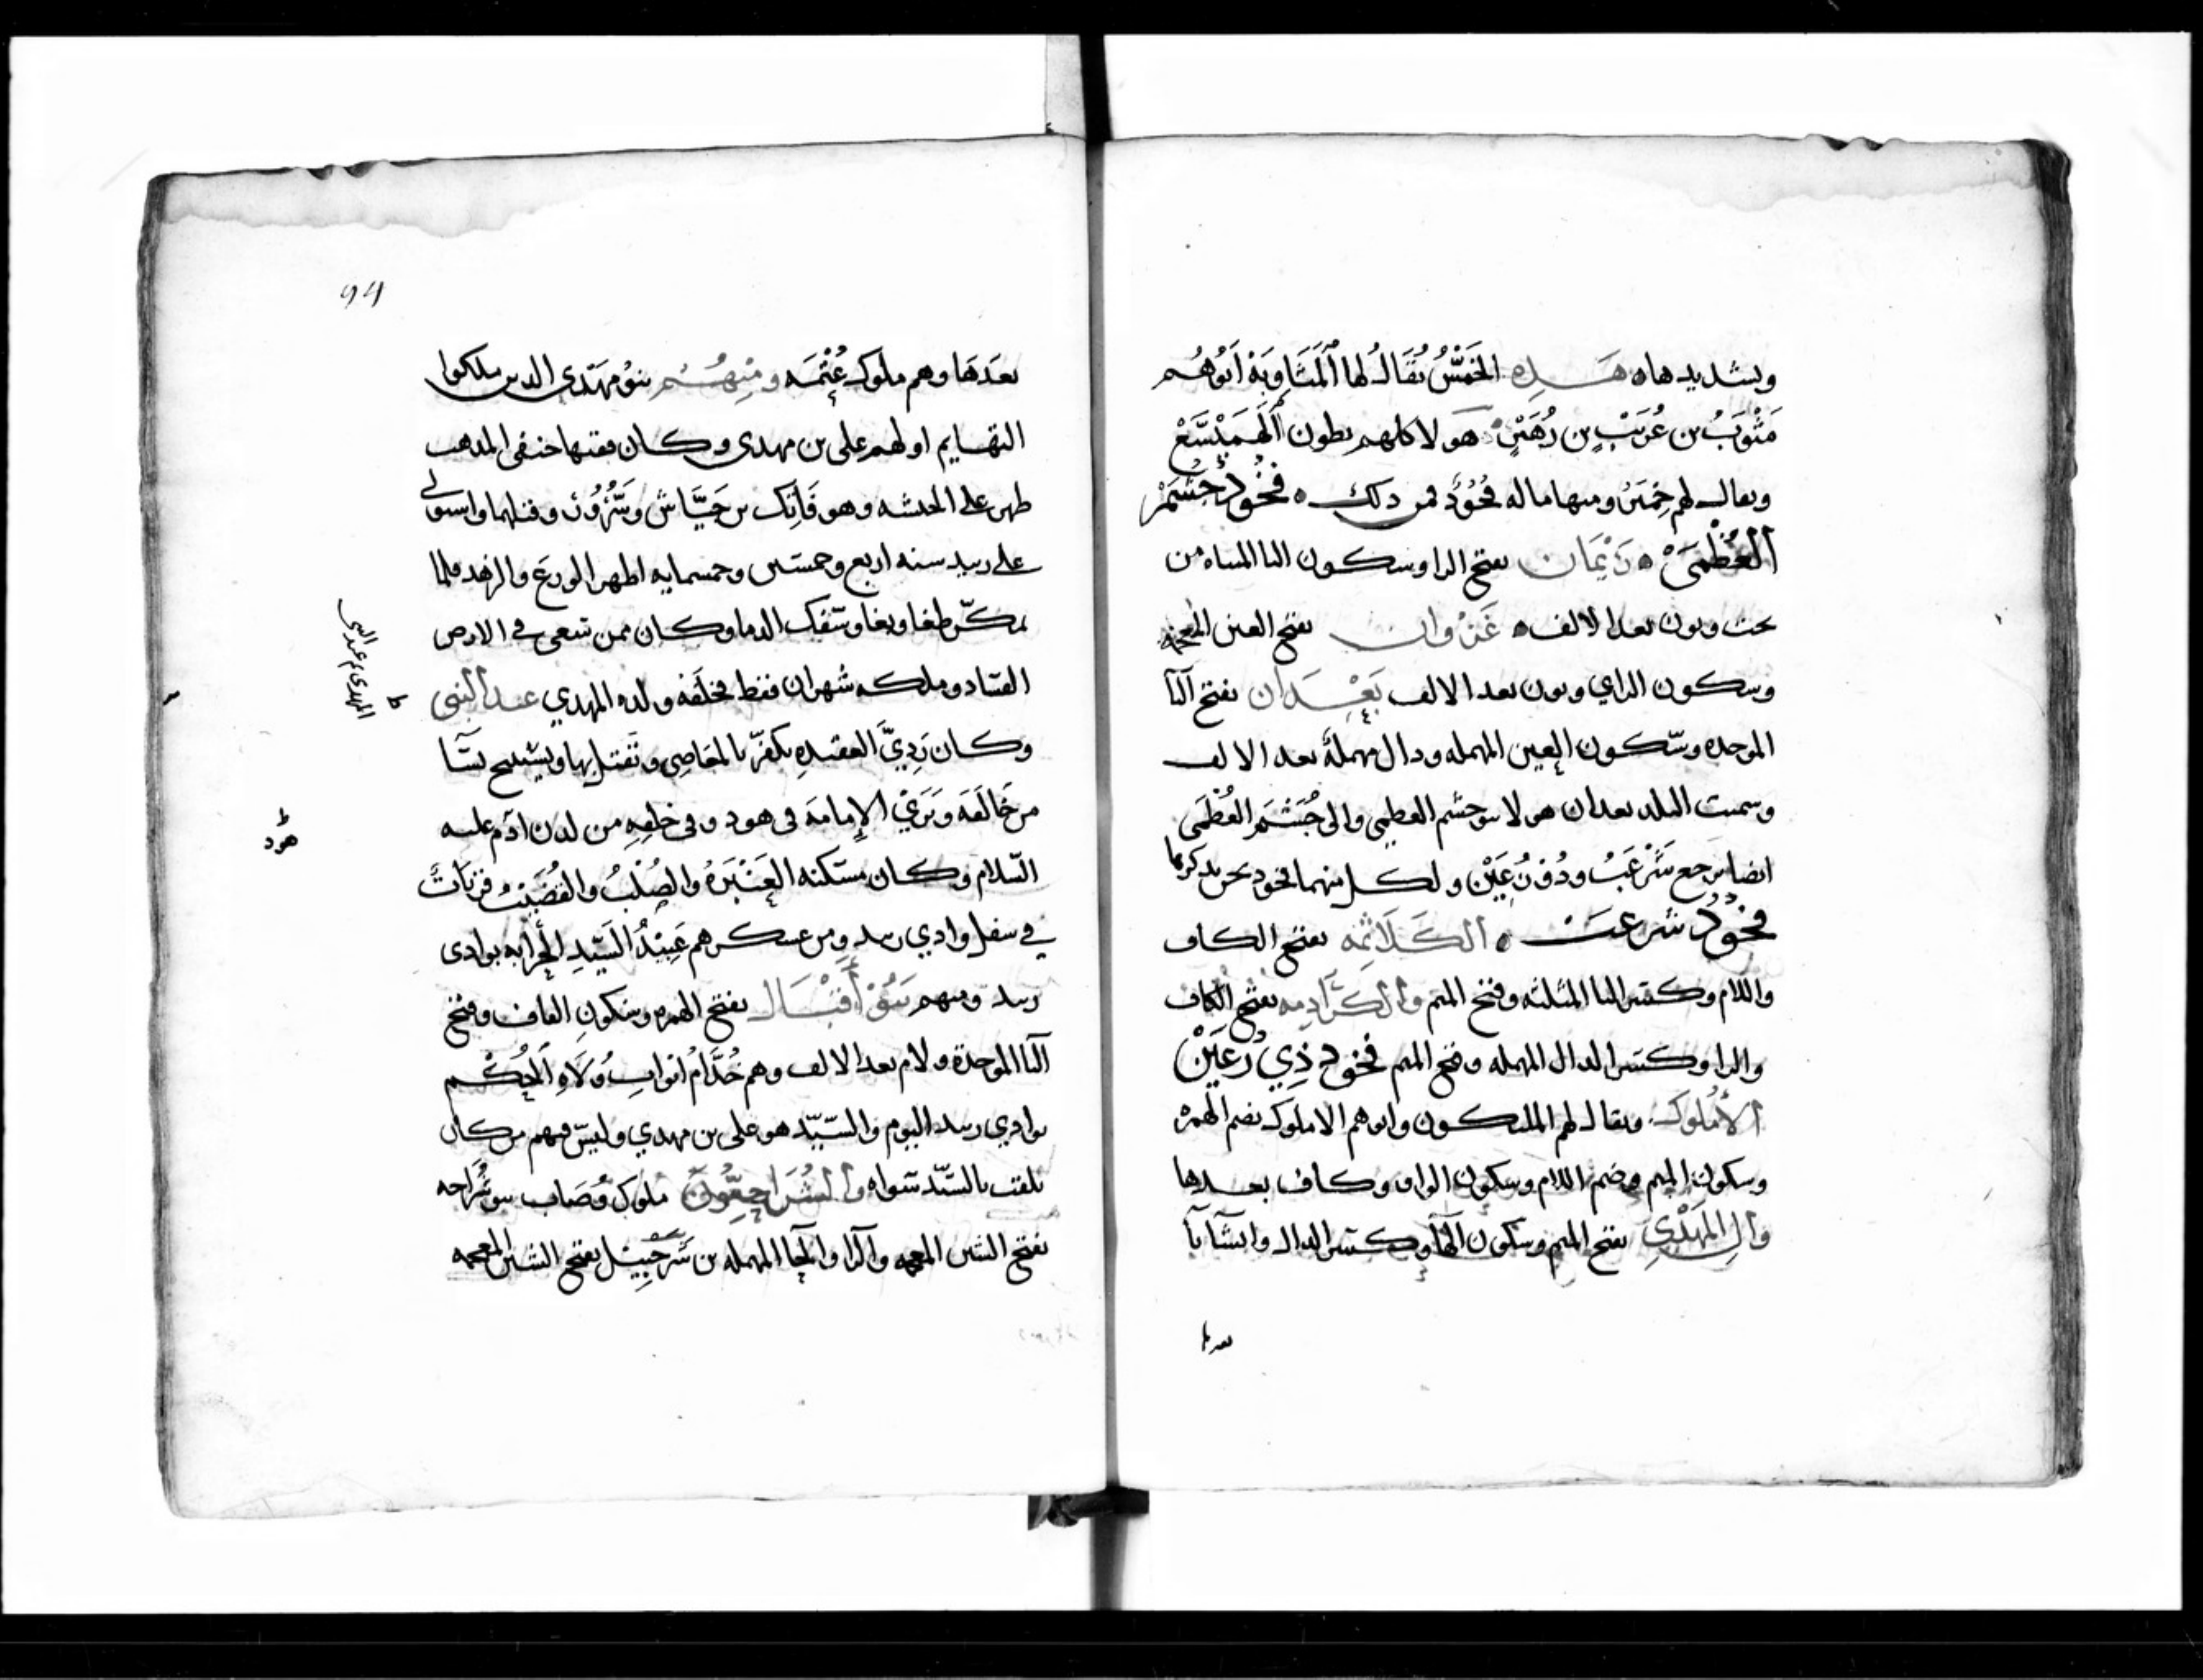 وتشديدها ه هذه الخَمسُ يُقَالُ لها المَثَاوِبَة أبُوهُم
مَثْوَبُ بن عُرَيْبِ بن زُهَيْرٍ هولا كلهم بطون الهَمَيْسَع
ويقال لهم حِمْيَر ومنها ما له فُخُوُذ فمن ذلك ه فخُوذ جُشَم
العُظْمَى ه رَيْمَان بفتح الرا وسكون اليا المثناه من
تحت ونون بعد الالف ه غَزْوان بفتح الغين المعجمه
وسكون الزاي ونون بعد الالف بَعْدَان بفتح البا
الموحده وسكون العين المهمله ودال مهملة بعد الالف
وسميت البلد بعدان هولا بنو جشم العظمى والى جُشَم العُظْمَى
ايضا يرجع شَرْعَبُ وذُو رُعَيْن ولكل منهما فخوذ نحن نذكرها
فخوذ شرعب ه الكَلَاثِمَه بفتح الكاف
واللام وكسر الثا المثلثه وفتح الميم والكَرَادِمه بفتح الكاف
والرا وكسر الدال المهمله وفتح الميم فخوذ ذِي رُعَيْن
الأُمْلُوك ويقال لهم الملكيون وابوهم الاملوك بضم الهمزه
وسكون الميم وضم اللام وسكون الواو وكاف بعدها
وال المَهْدِي بفتح الميم وسكون الها وكسر الدال واليا يا
بعدها
94
بعدَهَا وهم ملوك عُتْمَه ومِنهُم بنو مهدى الذين ملكوا
التهايم اولهم على بن مهدى وكان فقيها حنفى المذهب
ظهر على الحبشه وهو فَاتِك بن جَيَّاش وسُرُور وقتلهما واستولى
على زبيد سنه اربع وخمسين وخمسمايه اظهر الورع والزهد فلما
تمكّن طغا وبغا وسَفك الدما وكان ممن سعى في الارض
الفساد وملكه شهران فقط فخلَفَه ولده المهدي عبد النبى
المهدى بن عبد النبى
وكان رَدِيَّ العقيدةِ يكفّر بالمعَاصِى ويقتل بها ويستبيح نسَا
من خَالَفَه ويَدَّعِي الإمامَة فى هود وفى خلفِهِ من لدن ادم عليه
هود
السّلام وكان مسكنه العَنْبَرَة والصُلْبُ والقُضَيْبُ قريَاتٌ
في سفل وادي زبيد ومن عسكرهم عَبِيْدُ السَيِّدِ الجُرَابه بوادى
زبيد ومنهم بَنُو أَقْبَال بفتح الهمزه وسكون القاف وفتح
البا الموحدة ولام بعد الالف وهم خُدَّام ابوابِ وُلَاةِ الحُكْم
بوادي زبيد اليوم والسيّد هو على بن مهدي وليس فيهم من كان
يلقب بالسّيد سواه والشَرَاحِيُّون ملوك وُصَاب بنو شَرَاحه
بفتح الشين المعجمه والرا والحا المهمله بن شَرَحْبِيْل بفتح الشين المعجمه